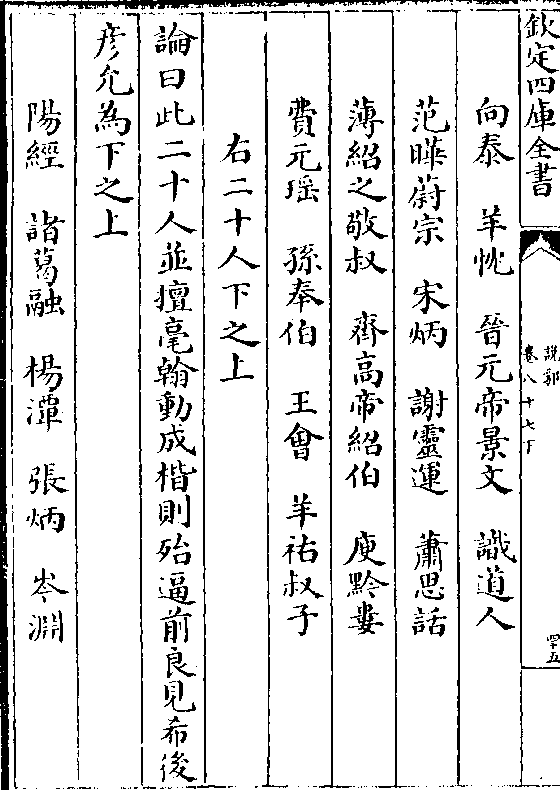 欽定四庫全書
說郛
卷八十七下
四十五
向泰　羊忱　晉元帝景文　識道人
范曄蔚宗　宋炳　謝靈運　蕭思話
薄紹之敬叔　齊高帝紹伯　庾黔婁
費元瑤　孫奉伯　王會　羊祐叔子
右二十人下之上
論曰此二十人並擅毫翰動成楷則殆逼前良見希後
彥允為下之上
陽經　諸葛融　楊潭　張炳　岑淵